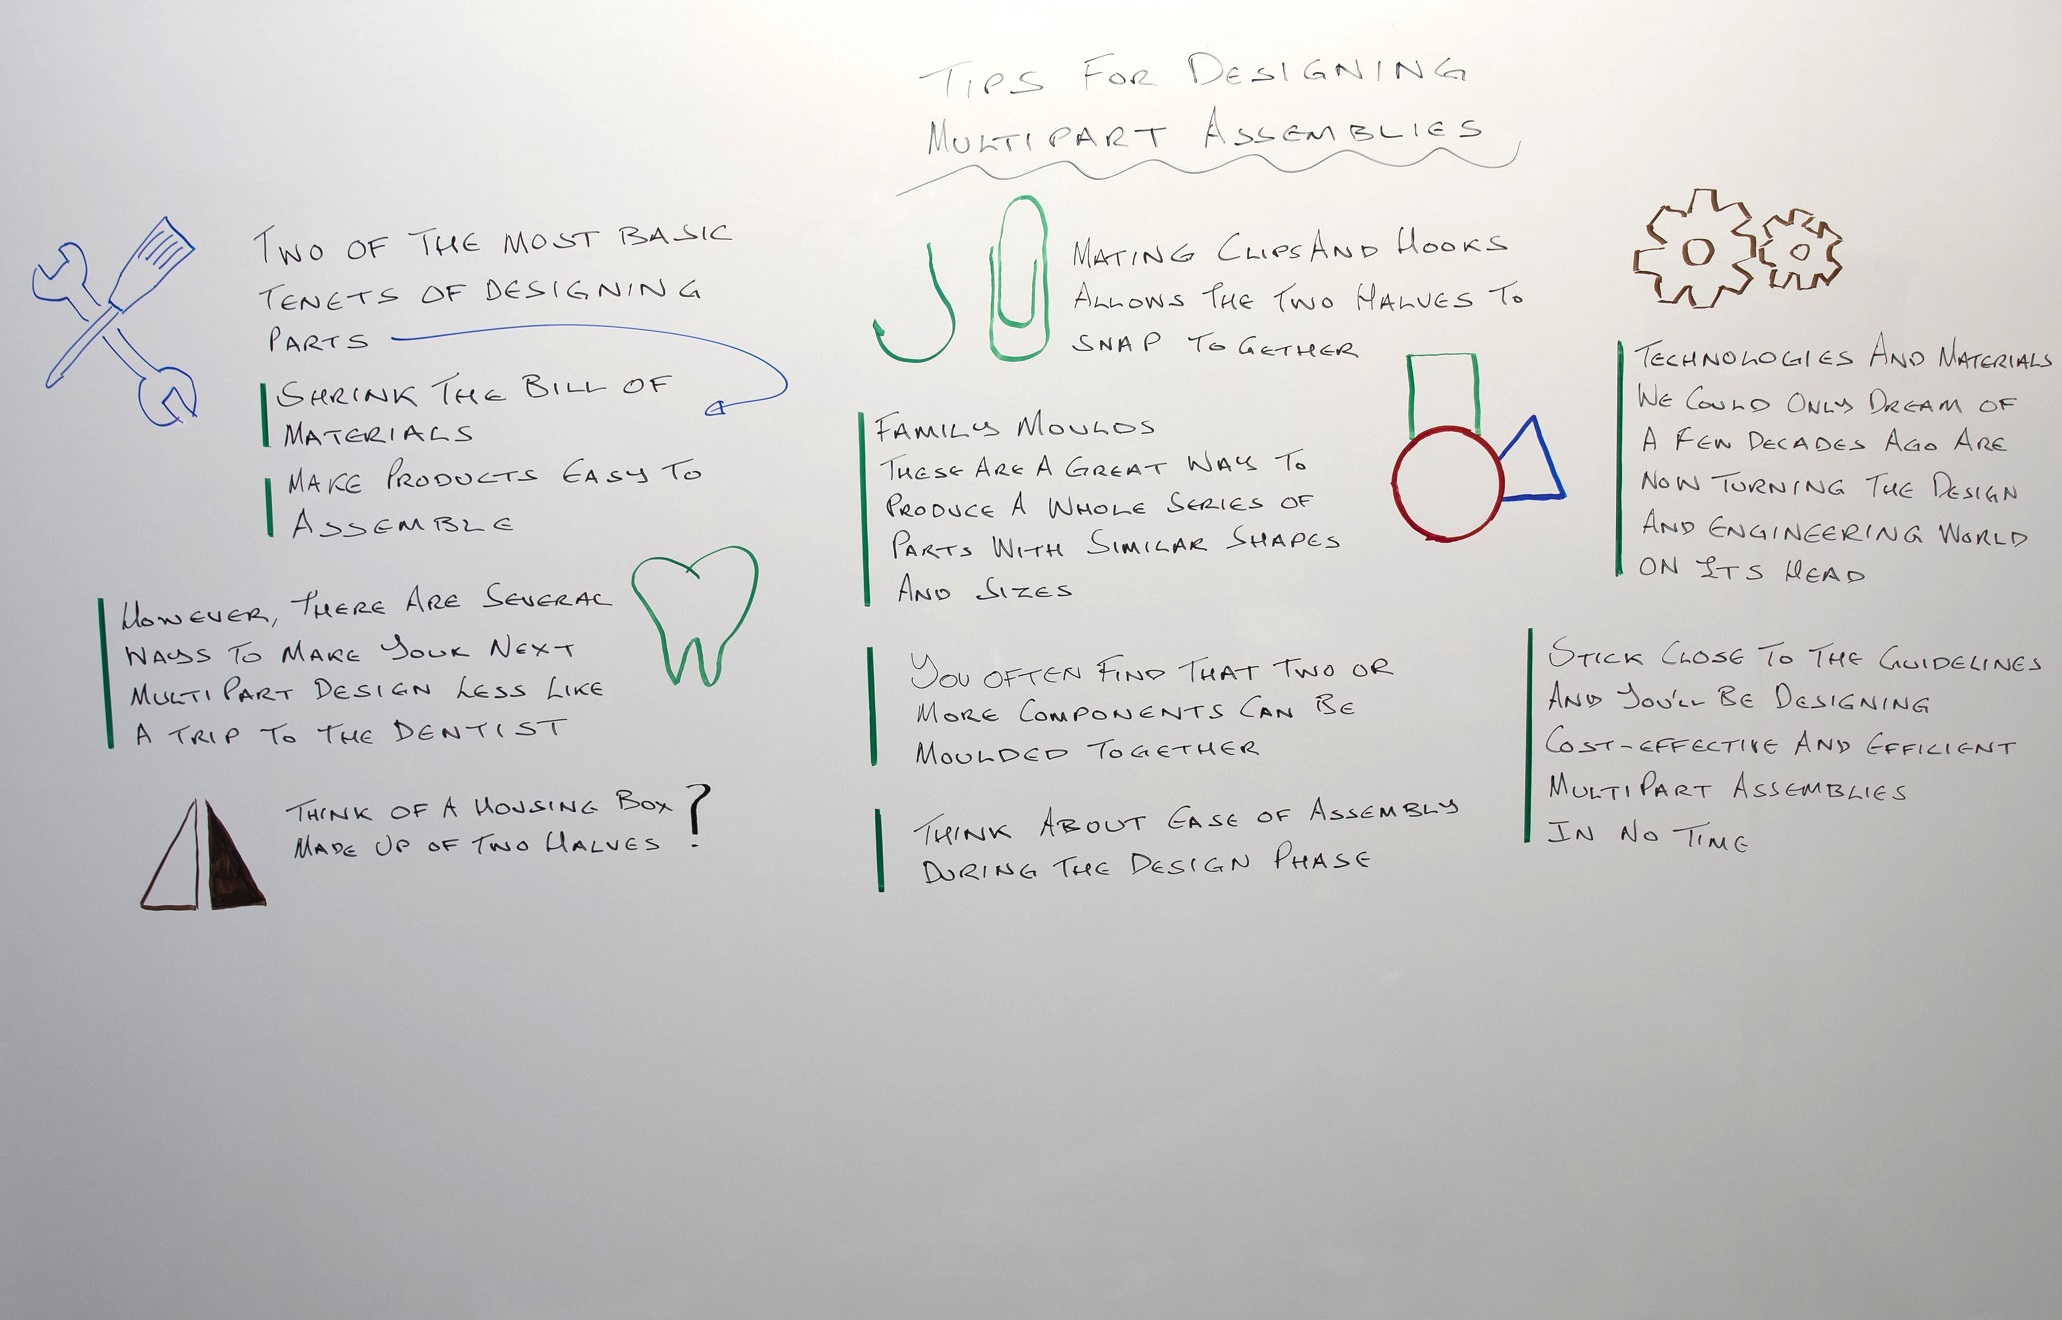 TIPS FOR DESIGNING
MULTIPART ASSEMBLIES
TWO OF THE MOST BASIC
TENETS OF DESIGNING
PARTS
SHRINK THE BILL OF
MATERIALS
MAKE PRODUCTS EASY TO
ASSEMBLE
HOWEVER, THERE ARE SEVERAL
WAYS TO MAKE YOUR NEXT
MULTIPART DESIGN LESS LIKE
A TRIP TO THE DENTIST
THINK OF A HOUSING BOX
MADE UP OF TWO HALVES ?
MATING CLIPS AND HOOKS
ALLOWS THE TWO HALVES TO
SNAP TOGETHER
FAMILY MOULDS
THESE ARE A GREAT WAY TO
PRODUCE A WHOLE SERIES OF
PARTS WITH SIMILAR SHAPES
AND SIZES
YOU OFTEN FIND THAT TWO OR
MORE COMPONENTS CAN BE
MOULDED TOGETHER
THINK ABOUT EASE OF ASSEMBLY
DURING THE DESIGN PHASE
TECHNOLOGIES AND MATERIALS
WE COULD ONLY DREAM OF
A FEW DECADES AGO ARE
NOW TURNING THE DESIGN
AND ENGINEERING WORLD
ON ITS HEAD
STICK CLOSE TO THE GUIDELINES
AND YOU'LL BE DESIGNING
COST-EFFECTIVE AND EFFICIENT
MULTIPART ASSEMBLIES
IN NO TIME